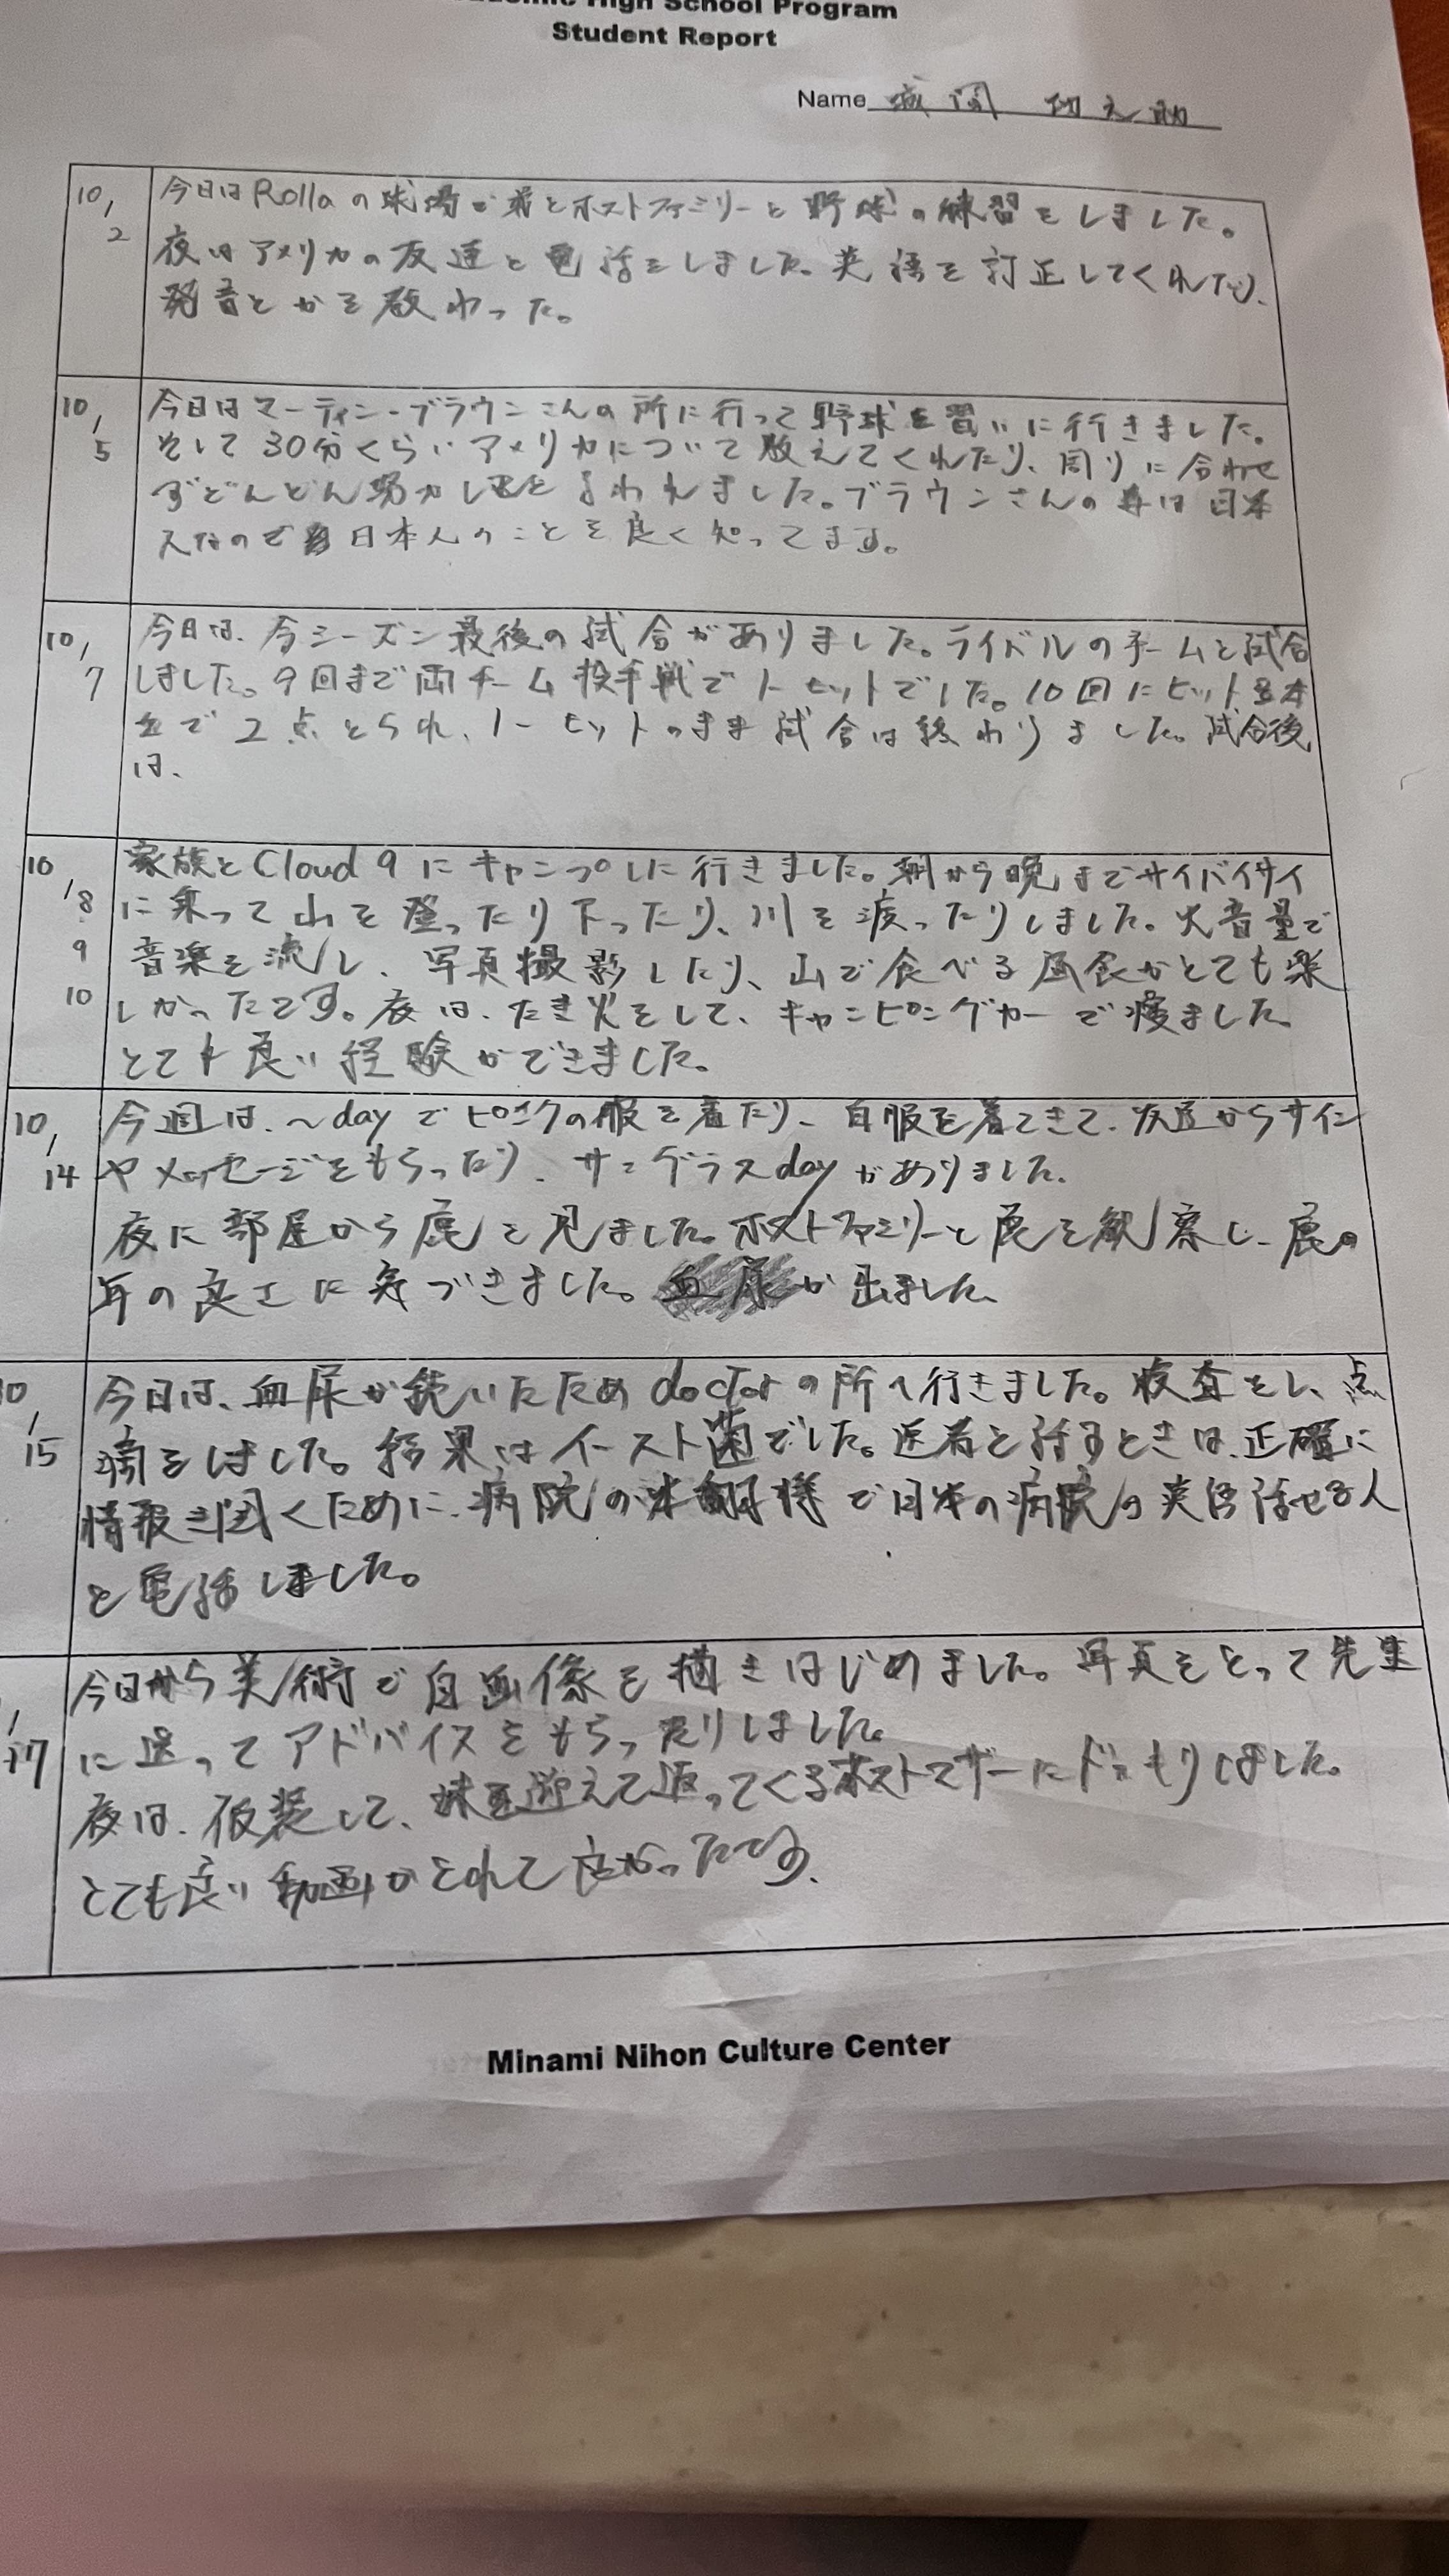 High School Program
Student Report
Name 城間
10/2
今日はRollaの球場で弟とホストファミリーと野球の練習をしました。
夜はアメリカの友達と電話をしました。英語を訂正してくれたり、
発音とかを教わった。
10/5
今日はマーティン・ブラウンさんの所に行って野球を習いに行きました。
そして30分くらいアメリカについて教えてくれたり、周りに合わせ
ずどんどん努力しろと言われました。ブラウンさんの妻は日本
人なので日本人のことを良く知ってます。
10/7
今日は、今シーズン最後の試合がありました。ライバルのチームと試合
しました。9回まで両チーム投手戦でノーヒットでした。10回にヒット
で2点とられ、ノーヒットのまま試合は終わりました。試合後
は、
10/8
9
10
家族とCloud 9にキャンプしに行きました。朝から晩までサイバイサイ
に乗って山を登ったり下ったり、川を渡ったりしました。大音量で
音楽を流し、写真撮影したり、山で食べる昼食がとても楽
しかったです。夜は、たき火をして、キャンピングカーで寝ました
とても良い経験ができました。
10/14
今週は、～dayでピンクの服を着たり、白服を着てきて、友達からサイン
やメッセージをもらったり、サングラスdayがありました。
夜に部屋から鹿を見ました。ホストファミリーと鹿を観察し、鹿の
耳の良さに気づきました。血尿が出ました。
10/15
今日は、血尿が続いたためdoctorの所へ行きました。検査をし、点
滴をしました。結果はイースト菌でした。医者と話すときは、正確に
情報を聞くために、病院の で日本の病院の英語話せる人
と電話しました。
/17
今日から美術で自画像を描きはじめました。写真をとって先生
に送ってアドバイスをもらったりしました。
夜は、仮装して、妹を迎えて返ってくるホストマザーにドッキリしました。
とても良い動画がとれて良かったです。
Minami Nihon Culture Center